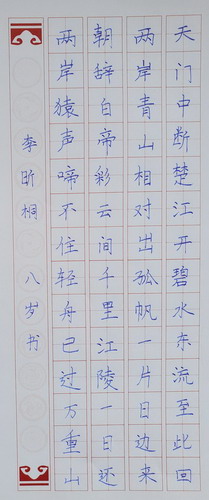 天门中断楚江开碧水东流至此回
两岸青山相对出孤帆一片日边来
朝辞白帝彩云间千里江陵一日还
两岸猿声啼不住轻舟已过万重山
李昕桐 八岁书